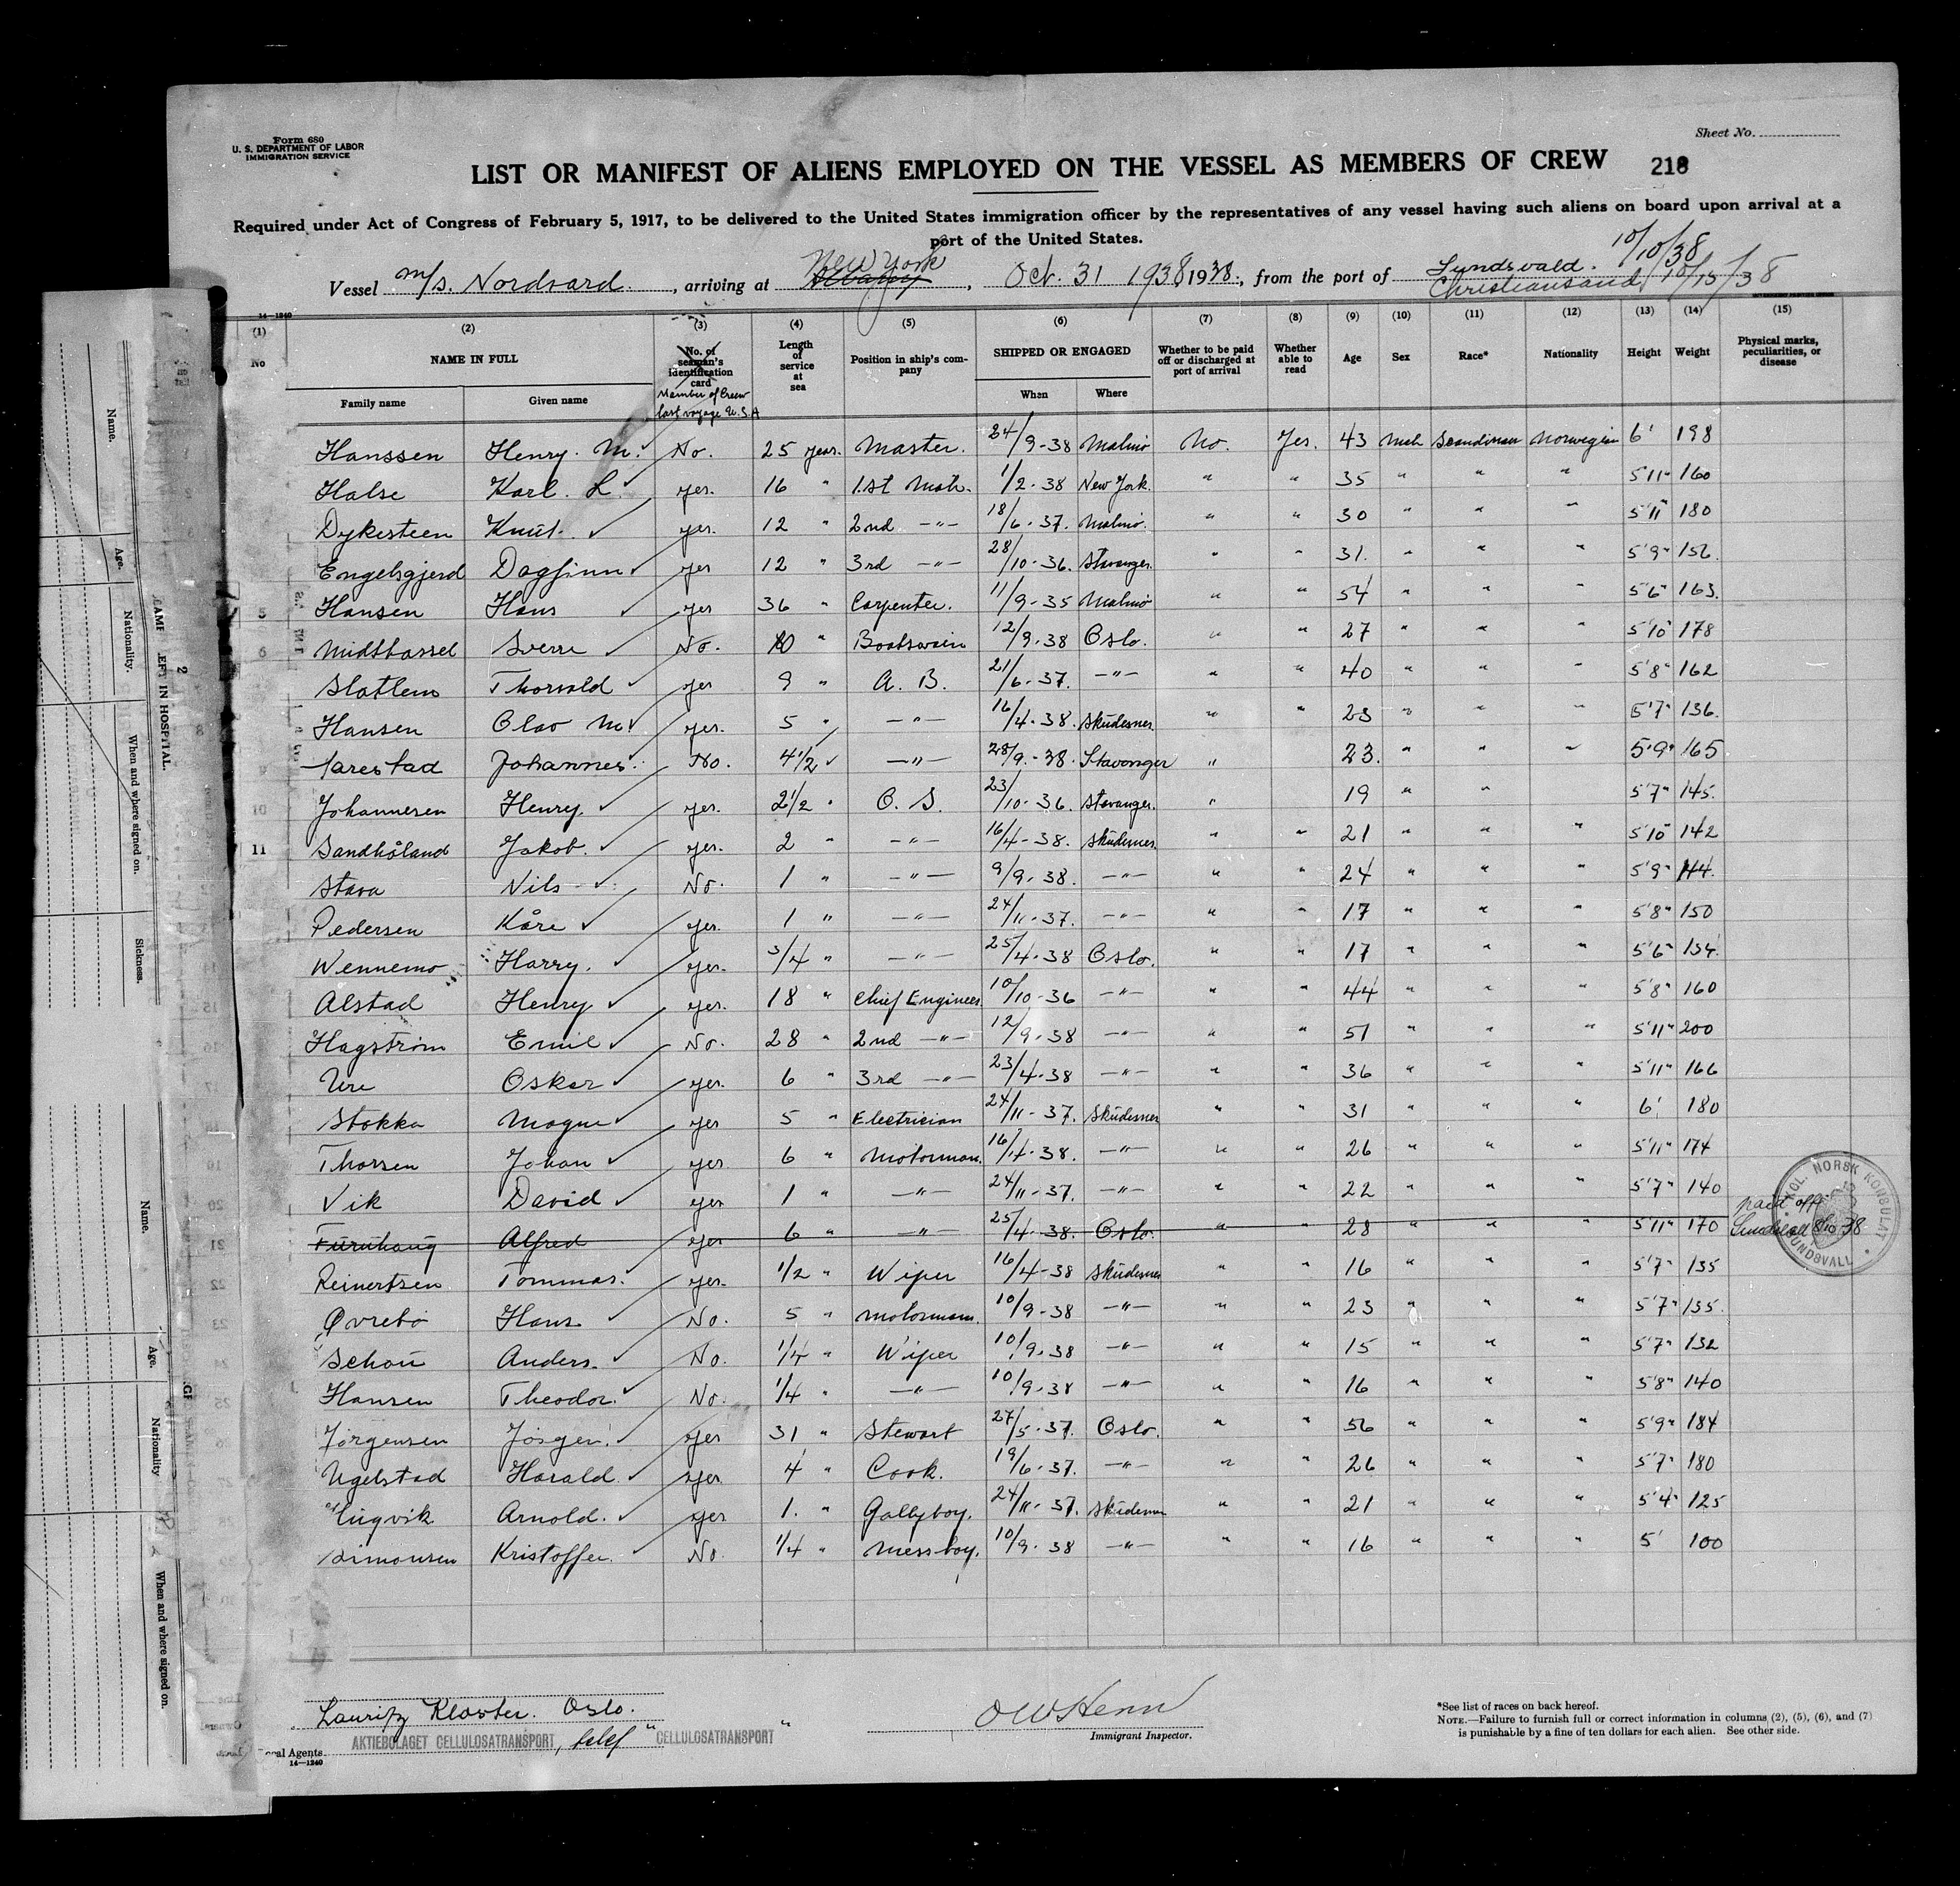 Form 680
U. S. DEPARTMENT OF LABOR
IMMIGRATION SERVICE
Sheet No.
LIST OR MANIFEST OF ALIENS EMPLOYED ON THE VESSEL AS MEMBERS OF CREW 218
Required under Act of Congress of February 5, 1917, to be delivered to the United States immigration officer by the representatives of any vessel having such aliens on board upon arrival at a
port of the United States.
Vessel m/s. Nordvard., arriving at New York Albany, Oct. 31 1938 1938, from the port of Sundsvald. 10/10/38
Christiansand 10/15/38
14—1240
(1) (2) (3) (4) (5) (6) (7) (8) (9) (10) (11) (12) (13) (14) (15)
No NAME IN FULL No. of seaman's identification card Length of service at sea Position in ship's company SHIPPED OR ENGAGED Whether to be paid off or discharged at port of arrival Whether able to read Age Sex Race* Nationality Height Weight Physical marks, peculiarities, or disease
Family name Given name Member of Crew last voyage U.S.A When Where
Hanssen Henry. M. No. 25 years. Master. 24/9-38 Malmö No. Yes. 43 Male Scandinavian Norwegian 6' 198
Halse Karl. L. yes. 16 " 1.st Mate. 1/2-38 New York. " " 35 " " " 5'11" 160
Dykesteen Knut. yes. 12 " 2nd -"- 18/6-37. Malmö. " " 30 " " " 5'11" 180
Engelsgjerd Dagfinn yes 12 " 3rd -"- 28/10-36. Stavanger. " " 31. " " " 5'9" 156.
5 Hansen Hans yes 36 " Carpenter. 11/9-35 Malmö " " 54 " " " 5'6" 163.
6 Midthassel Sverre No. 10 " Boatswain 12/9-38 Oslo. " " 27 " " " 5'10" 178
Slatlem Thorvald yes 9 " A. B. 21/6-37. -"- " " 40 " " " 5'8" 162
Hansen Olav M. yes. 5 " -"- 16/4-38. Skudesnes " " 23 " " " 5'7" 136.
9 Tarestad Johannes. No. 4 1/2 -"- 28/9.-38. Stavanger " 23. " " " 5'9" 165
10 Johannesen Henry. yes. 2 1/2 " O. S. 23/10-36. Stavanger. " 19 " " 5'7" 145.
11 Sandhåland Jakob. yes. 2 " -"- 16/4-38. Skudesnes. " " 21 " " " 5'10" 142
Stava Nils No. 1 " -"- 9/9.38. -"- " " 24 " " " 5'9" 144.
Pedersen Kåre yes. 1 " -"- 24/11-37. -"- " " 17 " " " 5'8" 150
Wennemo Harry. yes. 3/4 " -"- 25/4-38 Oslo. " " 17 " " " 5'6" 134.
Alstad Henry yes. 18 " Chief Engineer 10/10-36 -"- " " 44 " " " 5'8" 160
Hagström Emil No. 28 " 2nd -"- 12/9-38 -"- " " 51 " " " 5'11" 200
Ure Oskar yes. 6 " 3rd -"- 23/4-38 -"- " " 36 " " " 5'11" 166
Stokka Magne yes 5 " Electrician 24/11-37. Skudesnes " " 31 " " " 6' 180
Thorsen Johan yes 6 " Motorman. 16/4-38. -"- " " 26 " " " 5'11" 174
Vik David yes 1 " -"- 24/11-37. -"- " " 22 " " " 5'7" 140
Furuhaug Alfred yes 6 " -"- 25/4-38. Oslo. " " 28 " " " 5'11" 170 paid off Sundsvall 8/10 38
KGL. NORSK KONSULAT SUNDSVALL
Reinertsen Tommas. yes. 1/2 " Wiper 16/4-38 Skudesnes " " 16 " " " 5'7" 135
Øvrebö Hans No. 5 " Motorman. 10/9-38 -"- " " 23 " " " 5'7" 135.
Schau Anders. No. 1/4 " Wiper 10/9.38 -"- " " 15 " " " 5'7" 132
Hansen Theodor. No. 1/4 " -"- 10/9.38 -"- " " 16 " " " 5'8" 140
Jörgensen Jörgen. yes 31 " Stewart 27/5-37. Oslo. " " 56 " " " 5'9" 184
Ugelstad Harald. yes 4 " Cook. 19/6-37. -"- " " 26 " " " 5'7" 180
Arnold. yes 1. " Gallyboy. 24/11-37. Skudesnes " " 21 " " " 5'4" 125
Simonsen Kristoffer. No 1/4 " Messboy. 10/9-38 -"- " " 16 " " " 5' 100
Lauritz Kloster. Oslo.
AKTIEBOLAGET CELLULOSATRANSPORT, "CELLULOSATRANSPORT"
Local Agents.
14—1240
Immigrant Inspector.
*See list of races on back hereof.
NOTE.—Failure to furnish full or correct information in columns (2), (5), (6), and (7)
is punishable by a fine of ten dollars for each alien. See other side.
Name.
Age.
Nationality.
When and where signed on.
Sickness.
LEFT IN HOSPITAL.
Name.
Age.
Nationality
When and where signed on.